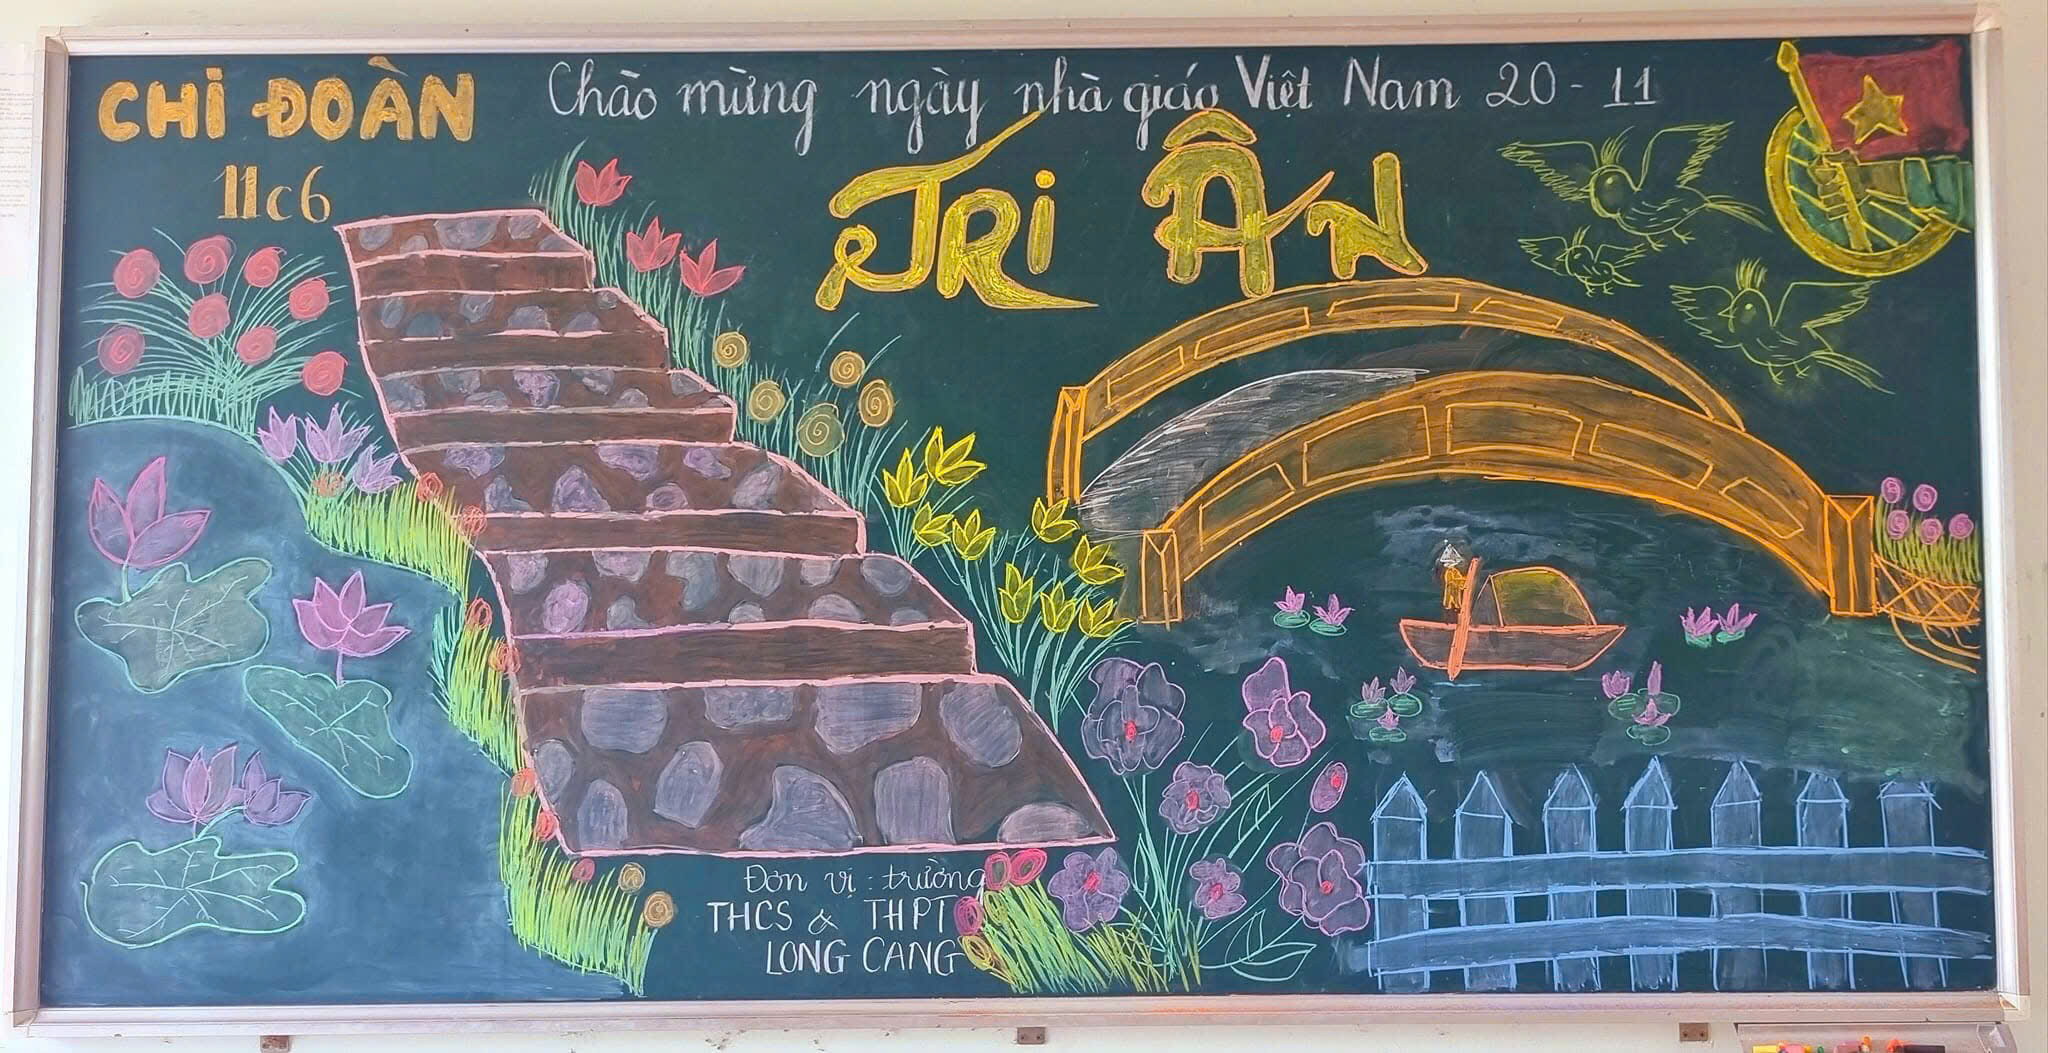 CHI ĐOÀN
11c6
Chào mừng ngày nhà giáo Việt Nam 20-11
TRI ÂN
Đơn vị: trường
THCS & THPT
LONG CANG